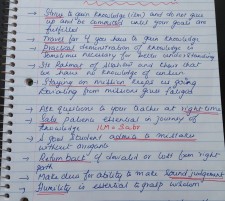 → Strive to gain knowledge (ilm) and do not give
up and be committed until your goals are
fulfilled
→ Travel far if you have to gain knowledge
→ Practical demonstration of knowledge is
sometimes necessary for better understanding
→ Its Rahmat of Allah and those that
we have no knowledge of unseen
→ Staying on mission keep us going
Deviating from mission gives fatigue
→ Ask questions to your teacher at right time
→ Sabr patience essential in journey of
knowledge ILM = Sabr
→ A good student admits to mistakes
without arrogance
→ Return back if deviated or lost from right
path
→ Make dua for ability to make sound judgement
→ Humility is essential to grasp wisdom